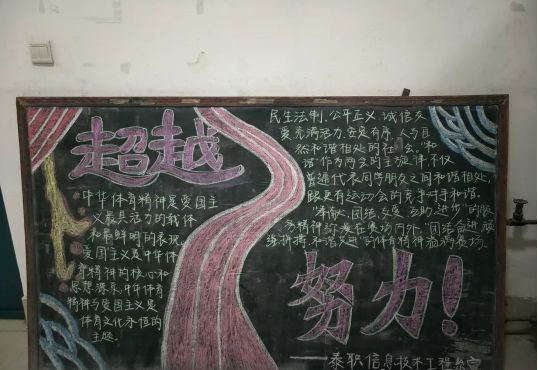 超越
中华体育精神是爱国主
义最具活力的载体
和最鲜明的表现。
爱国主义是中华体
育精神的核心和
思想源泉。中华体育
精神与爱国主义是
体育文化永恒的
主题。
民主法制、公平正义、诚信友
爱、充满活力、安定有序、人与自
然和谐相处的社会。“和
谐”作为两会的主旋律,不仅
普通代表同学朋友之间和谐相处,
更有运动会的竞争对手和谐。
团结、友爱、互助、进步”的
精神 在赛场内外,“团结奋进 顽
强拼搏 和谐 进”的体育精神 赛场。
努力!
——泰职信息技术工程系